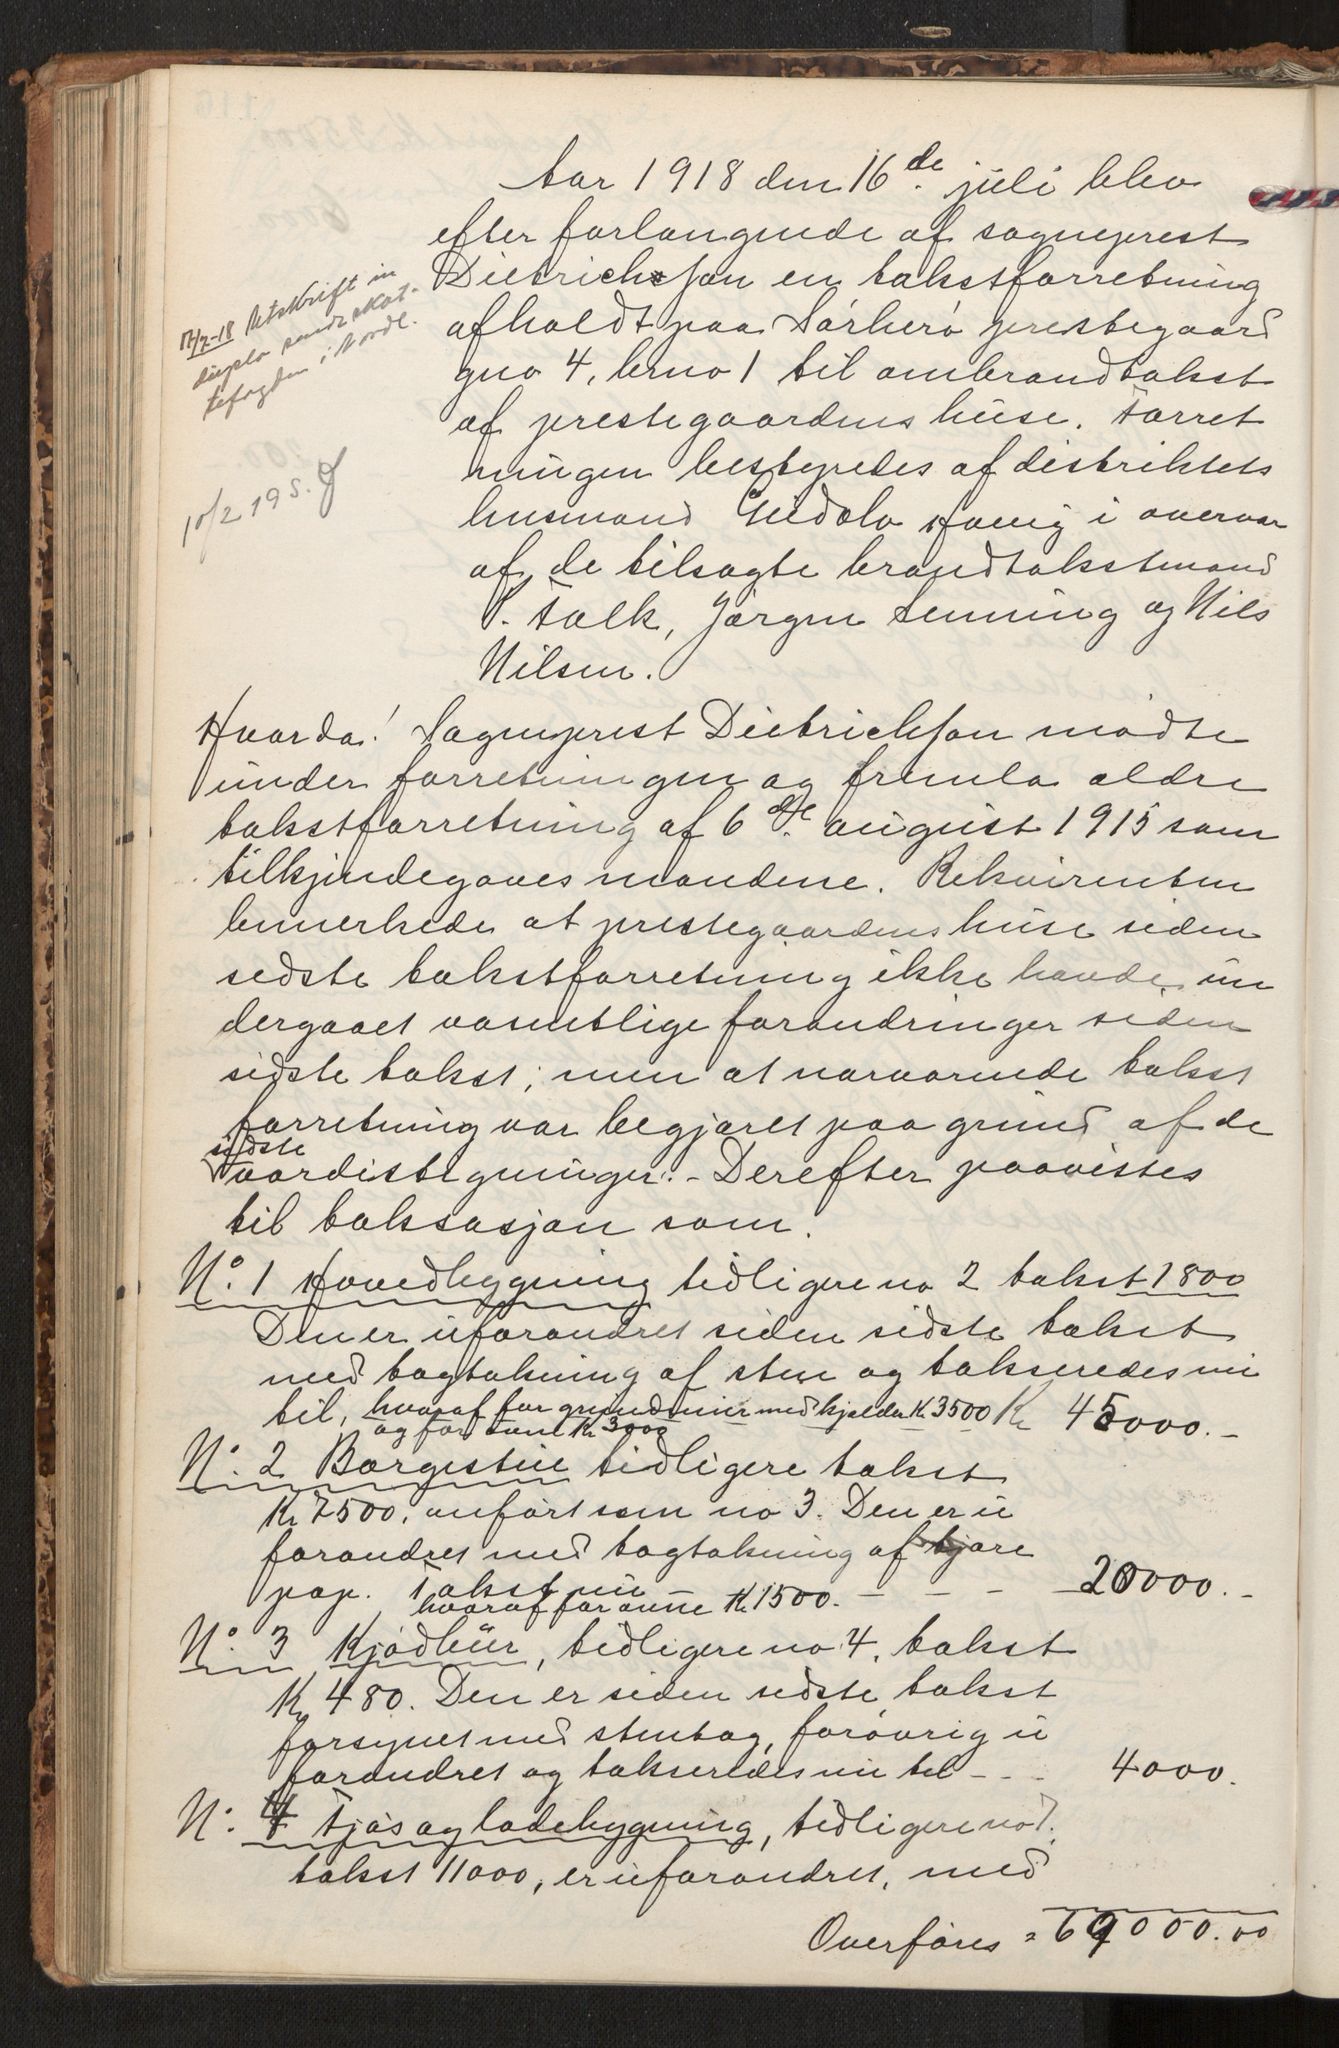 Aar 1918 den 16de. juli blev
efter forlangende af sogneprest
Dietrichson en takstforretning
afholdt paa Sørherø prestegaard
gno 4, brno 1 til ombrandtakst
af prestegaardens huse. Forret
ningen bestyredes af distriktets
lensmand Gudolv i overvær
af de tilsagte brandtakstmænd
P. Falk, Jørgen Senning og Nils
Nilsen.
17/7-18 Utskrift in
duplo sendt skat-
tefogden i Nordl.
10/2 19 S.
Hvorda! Sogneprest Dietrichson mødte
under forretningen og fremla ældre
takstforretning af 6te. august 1915 som
tilkjendegaves mændene. Rekvirenten
bemerkede at prestegaardens huse siden
sidste takstforretning ikke havde un
dergaaet væsentlige forandringer siden
sidste takst; men at nærværende takst
forretning var begjæret paa grund af de
sidste
værdistigninger. - Derefter paavistes
til taksasjon som.
No. 1 Hovedbygning tidligere no 2 takst 1800
Den er uforandret siden sidste takst
med tagtækning af sten og takseredes nu
til, hvoraf for grundmur med kjelder K 3500 Kr 45000.-
og for ovne Kr 3000
No. 2 Borgestue tidligere takst
Kr 7500, anført som no 3. Den er u
forandret med tagtækning af tjære
pap. Takst nu - - - - 20000.-
hvoraf for ovne Kr 1500.
No. 3 Kjødbur, tidligere no 4, takst
Kr 480. Den er siden sidste takst
forsynet med stentag, forøvrig u
forandret og takseredes nu til - - - 4000.
N. 4 Fjøs og ladebygning, tidligere no 7.
takst 11000, er uforandret, med
Overføres = 69000.00